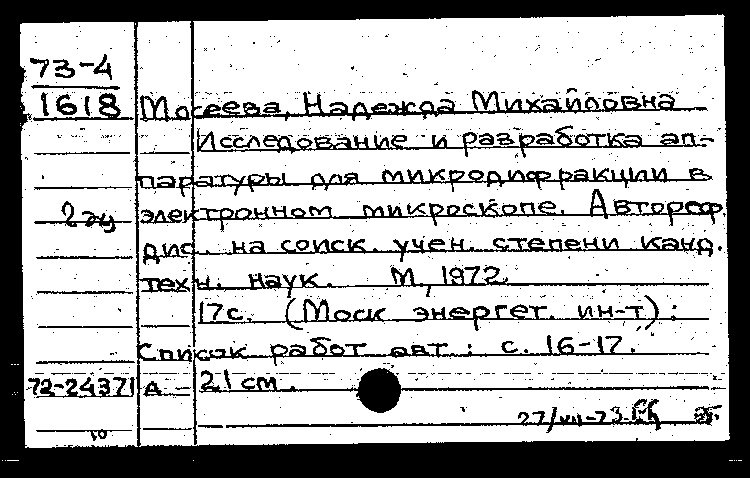 73-4
1618 Мосеева, Надежда Михайловна
Исследование и разработка ап-
паратуры для микродифракции в
2 эу электронном микроскопе. Автореф.
дис. на соиск. учен. степени канд.
техн. наук. М., 1972.
17с. (Моск энергет. ин-т):
Список работ авт.: с. 16-17.
72-24371 А - 21 см.
27/VII-73.
10